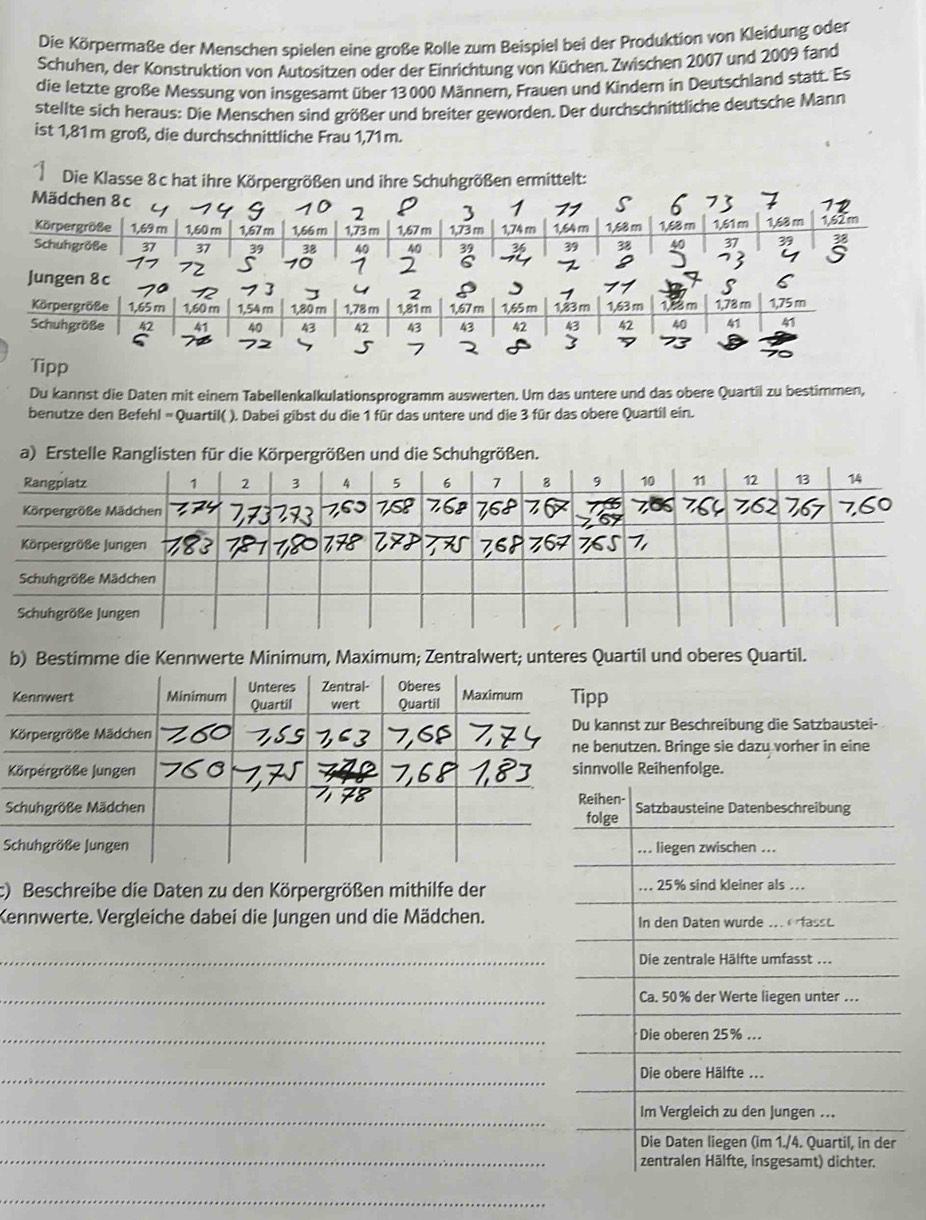 Die Körpermaße der Menschen spielen eine große Rolle zum Beispiel bei der Produktion von Kleidung oder
Schuhen, der Konstruktion von Autositzen oder der Einrichtung von Küchen. Zwischen 2007 und 2009 fand
die letzte große Messung von insgesamt über 13 000 Männern, Frauen und Kindern in Deutschland statt. Es
stellte sich heraus: Die Menschen sind größer und breiter geworden. Der durchschnittliche deutsche Mann
ist 1,81 m groß, die durchschnittliche Frau 1,71 m.
1 Die Klasse 8 c hat ihre Körpergrößen und ihre Schuhgrößen ermittelt:
Mädchen 8 c
4 14 9 10 2 8 3 1 11 5 6 13 7 12
Körpergröße 1,69 m 1,60 m 1,67 m 1,66 m 1,73 m 1,67 m 1,73 m 1,74 m 1,64 m 1,68 m 1,68 m 1,61 m 1,68 m 1,62 m
Schuhgröße 37 37 39 38 40 40 39 36 39 38 40 37 39 38
11 12 5 10 1 2 6 14 7 8 3 13 4 9
Jungen 8 c
10 12 13 3 4 2 8 9 1 11 7 5 6
Körpergröße 1,65 m 1,60 m 1,54 m 1,80 m 1,78 m 1,81 m 1,67 m 1,65 m 1,83 m 1,63 m 1,68 m 1,78 m 1,75 m
Schuhgröße 42 41 40 43 42 43 43 42 43 42 40 41 41
6 12 4 5 1 2 8 3 13 10
Tipp
Du kannst die Daten mit einem Tabellenkalkulationsprogramm auswerten. Um das untere und das obere Quartil zu bestimmen,
benutze den Befehl = Quartil( ). Dabei gibst du die 1 für das untere und die 3 für das obere Quartil ein.
a) Erstelle Ranglisten für die Körpergrößen und die Schuhgrößen.
Rangplatz 1 2 3 4 5 6 7 8 9 10 11 12 13 14
Körpergröße Mädchen 1,74 1,73 1,73 1,60 1,68 1,68 1,68 1,67 1,67 1,66 1,64 1,62 1,61 1,60
Körpergröße Jungen 1,83 1,81 1,80 1,78 1,78 1,75 1,68 1,67 1,65 1,
Schuhgröße Mädchen
Schuhgröße Jungen
b) Bestimme die Kennwerte Minimum, Maximum; Zentralwert; unteres Quartil und oberes Quartil.
Kennwert Minimum Unteres Quartil Zentral-wert Oberes Quartil Maximum
Körpergröße Mädchen 1,60 1,55 1,63 1,68 1,74
Körpergröße Jungen 160 1,75 1,78 1,68 1,83
Schuhgröße Mädchen
Schuhgröße Jungen
Tipp
Du kannst zur Beschreibung die Satzbaustei-
ne benutzen. Bringe sie dazu vorher in eine
sinnvolle Reihenfolge.
c) Beschreibe die Daten zu den Körpergrößen mithilfe der
Kennwerte. Vergleiche dabei die Jungen und die Mädchen.
Reihen-folge Satzbausteine Datenbeschreibung
... liegen zwischen ...
... 25 % sind kleiner als ...
In den Daten wurde ... erfasst.
Die zentrale Hälfte umfasst ...
Ca. 50 % der Werte liegen unter ...
Die oberen 25 % ...
Die obere Hälfte ...
Im Vergleich zu den Jungen ...
Die Daten liegen (im 1./4. Quartil, in der
zentralen Hälfte, insgesamt) dichter.